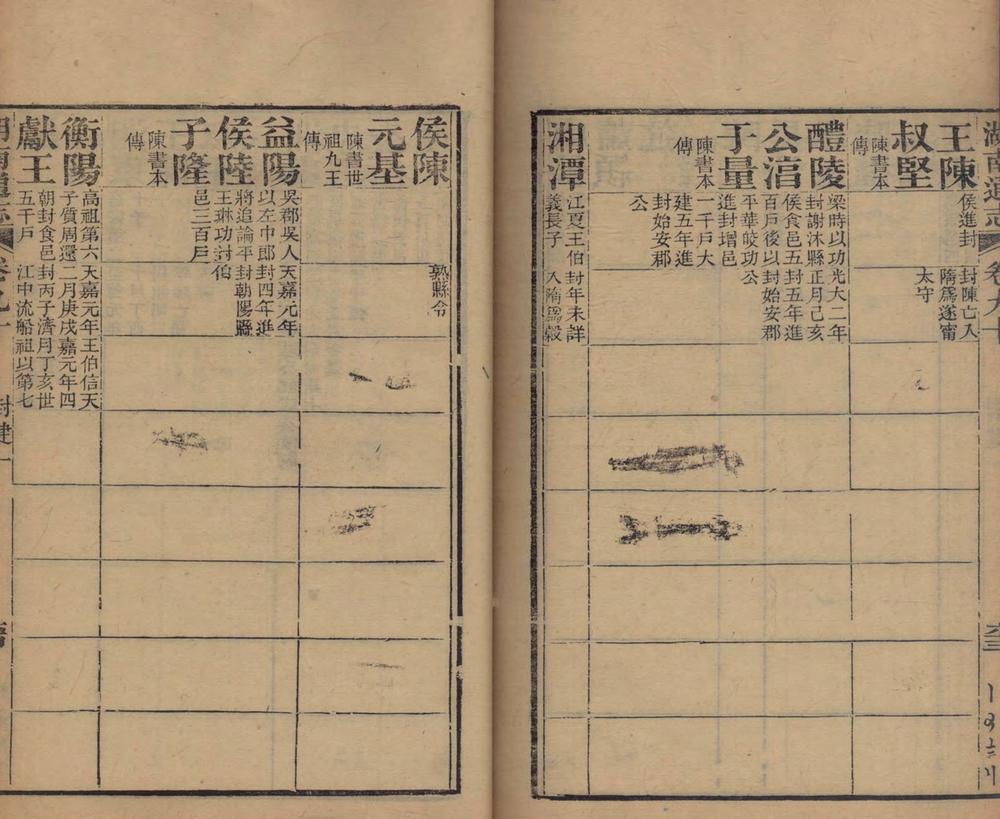 湖南通志
卷九十
王陳
叔堅
陳書本
傳
侯進封
封陳亡入
隋爲遂甯
太守
醴陵
公淯
于量
陳書本
傳
梁時以功
封謝沐縣
侯食邑五
百戶後以
平華皎功
進封增邑
一千戶大
建五年進
封始安郡
公
光大二年
正月己亥
封五年進
封始安郡
公
湘潭
江夏王伯
義長子
封年未詳
入隋爲穀
熟縣令
侯陳
元基
陳書世
祖九王
傳
益陽
侯陸
子隆
陳書本
傳
吳郡吳人
以左中郎
將追論平
王琳功封
邑三百戶
天嘉元年
封四年進
封朝陽縣
伯
衡陽
獻王
高祖第六
子質周還
朝封食邑
五千戶
天嘉元年
二月庚戌
封丙子濟
江中流船
王伯信天
嘉元年四
月丁亥世
祖以第七
封建一